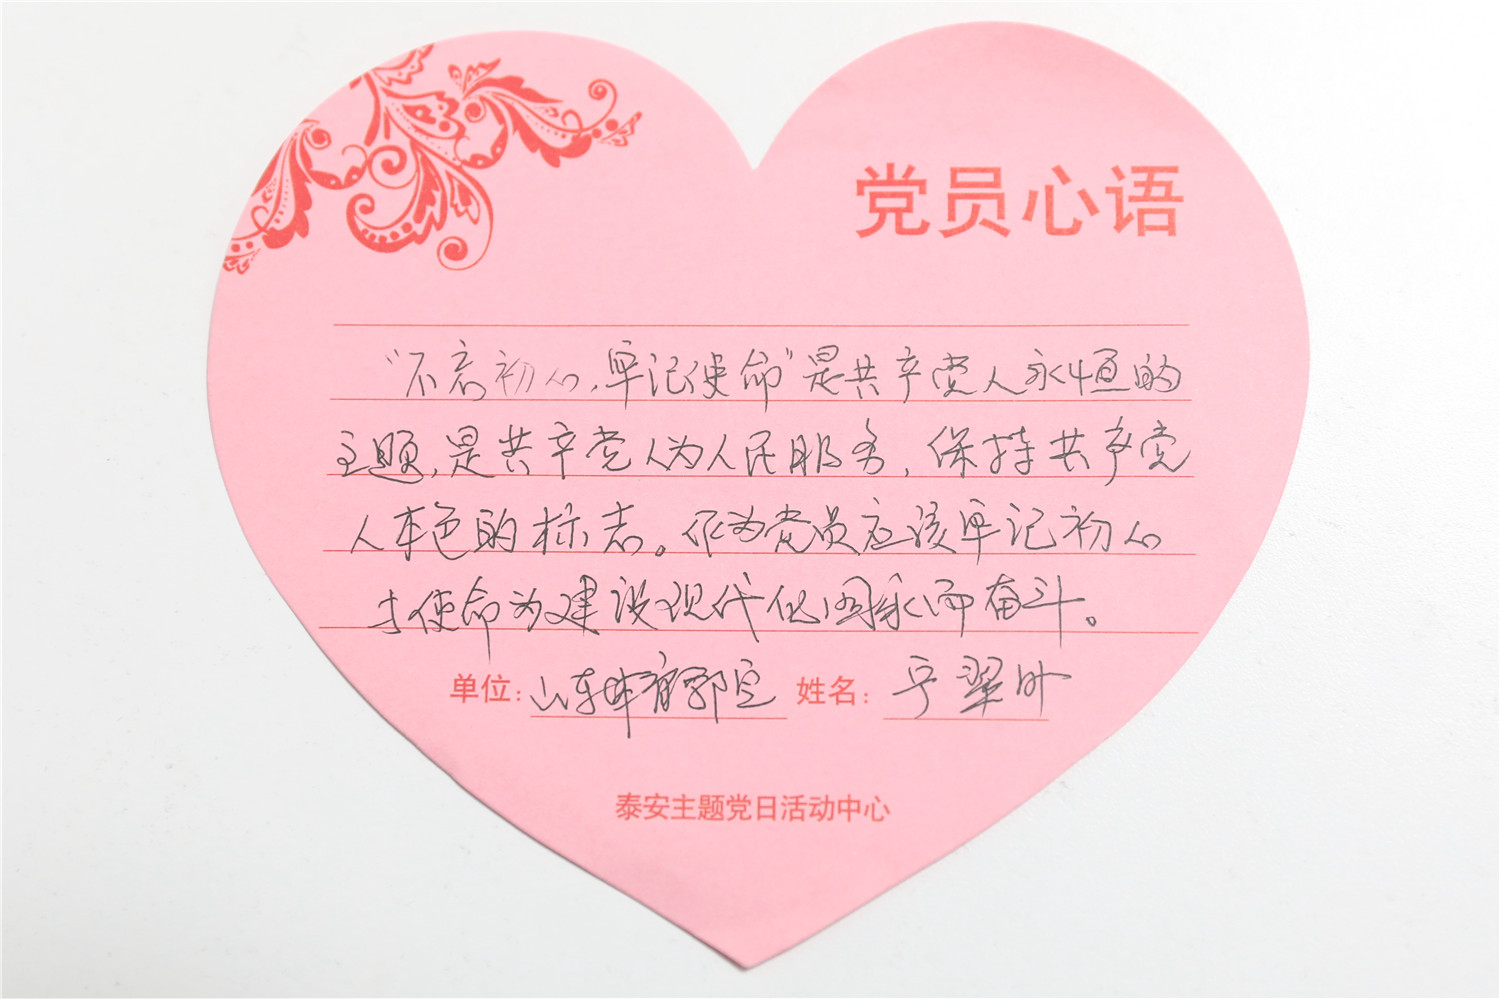 党员心语
“不忘初心,牢记使命”是共产党人永恒的
主题,是共产党人为人民服务,保持共产党
人本色的标志。作为党员应该牢记初心
与使命为建设现代化国家而奋斗。
单位:山东 姓名:
泰安主题党日活动中心